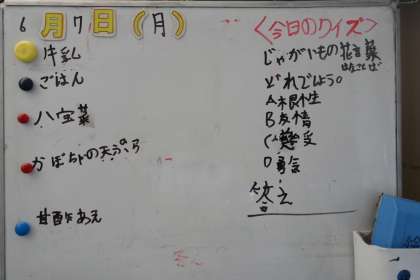 6月7日(月)
牛乳
ごはん
八宝菜
かぼちゃの天ぷら
甘酢あえ
<今日のクイズ>
じゃがいもの花言葉
はなことば
どれでしょう。
A 根性
B 友情
C 慈愛
D 勇気
答え